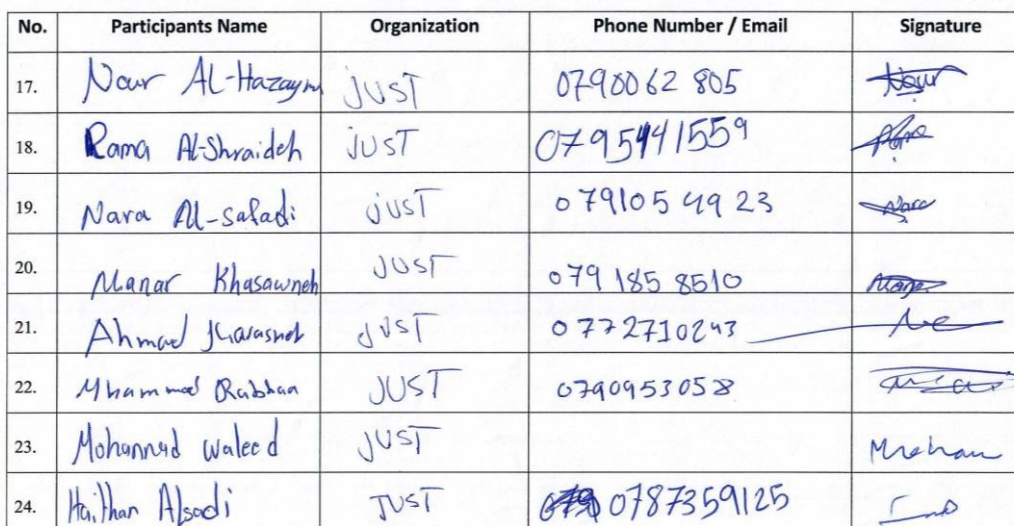 No. Participants Name Organization Phone Number / Email Signature
17. Nour AL-Hazaym JUST 0790062 805 Nour
18. Rama Al-Shraideh JUST 0795441559
19. Nara Al-safadi JUST 079105 49 23 Nara
20. Manar Khasawneh JUST 079 185 8510
21. Ahmad JUST 0772710243
22. JUST 0790953058
23. Mohannad waleed JUST
24. Haithan Alsadi JUST 0787359125